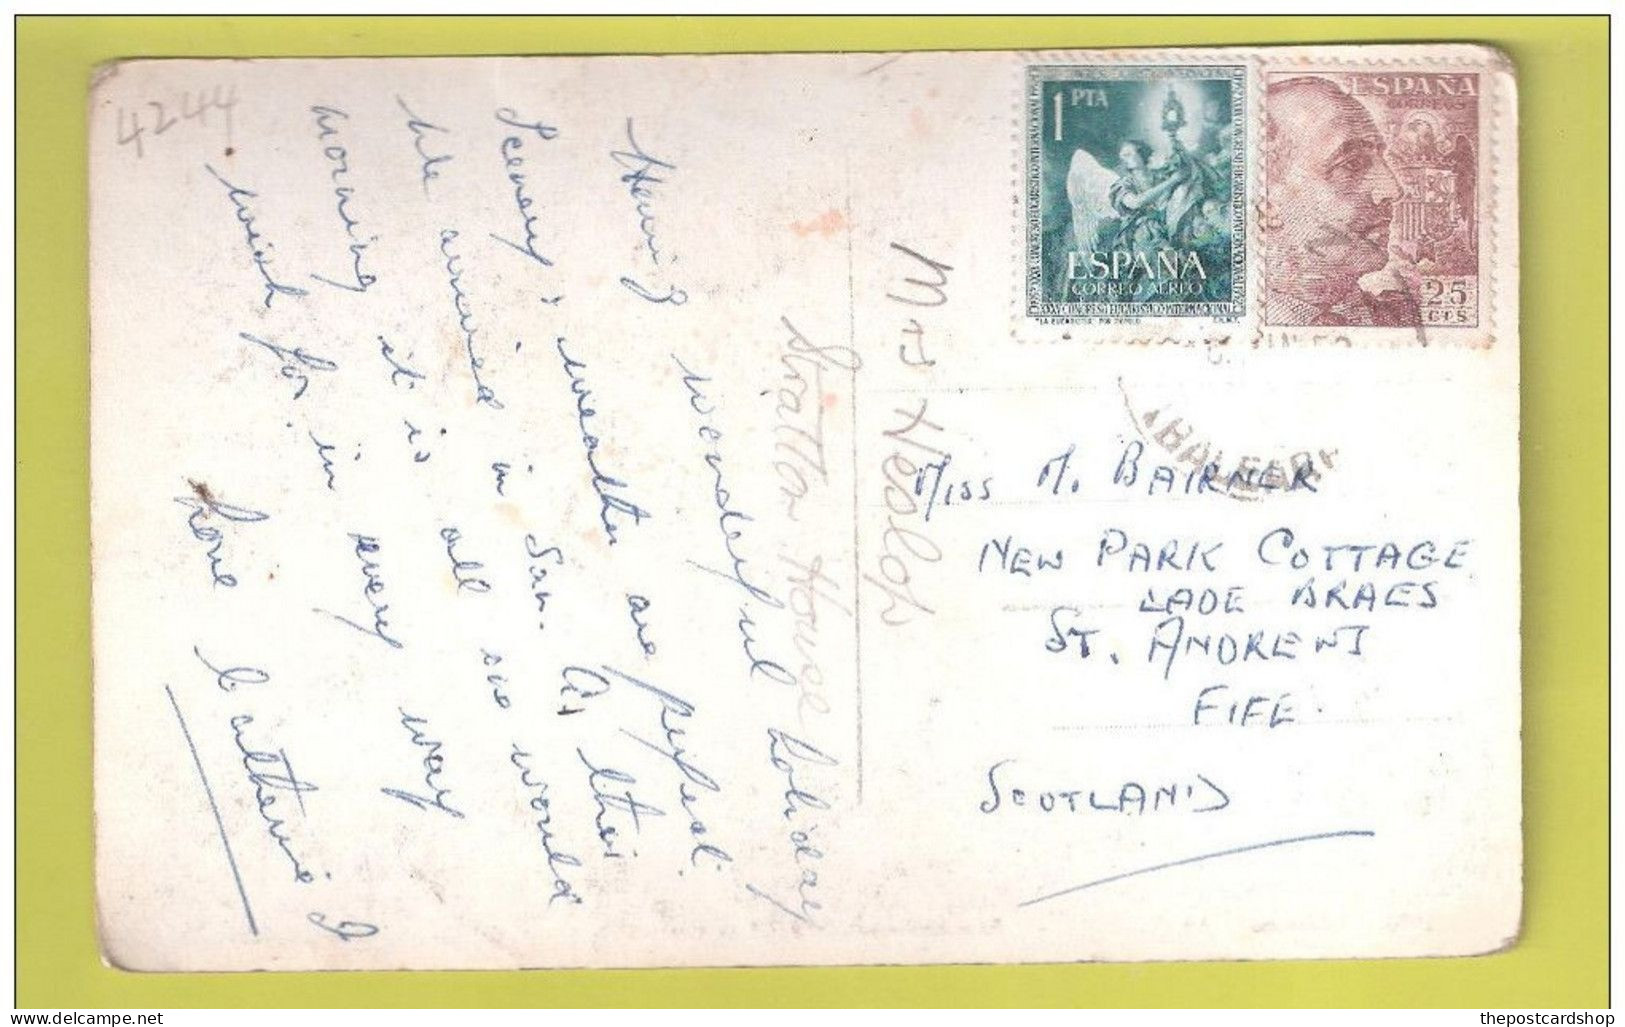 4244
Having wonderful holiday
Scenery & weather are perfect.
We arrived in San. Ant. this
morning it is all we would
wish for in every way
Love Catherine J
Stratton House
Mrs
1 PTA
ESPAÑA
CORREO AEREO
XXXV CONGRESO EUCARISTICO INTERNACIONAL
ESPAÑA
CORREOS
25
CTS
BALEAR
MISS M. BAIRNER
NEW PARK COTTAGE
LADE BRAES
ST. ANDREWS
FIFE.
SCOTLAND
delcampe.net
thepostcardshop